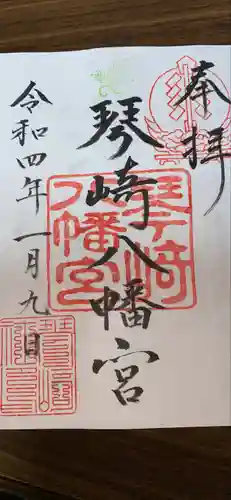 奉拝
琴崎八幡宮
令和四年一月九日
琴崎八幡宮